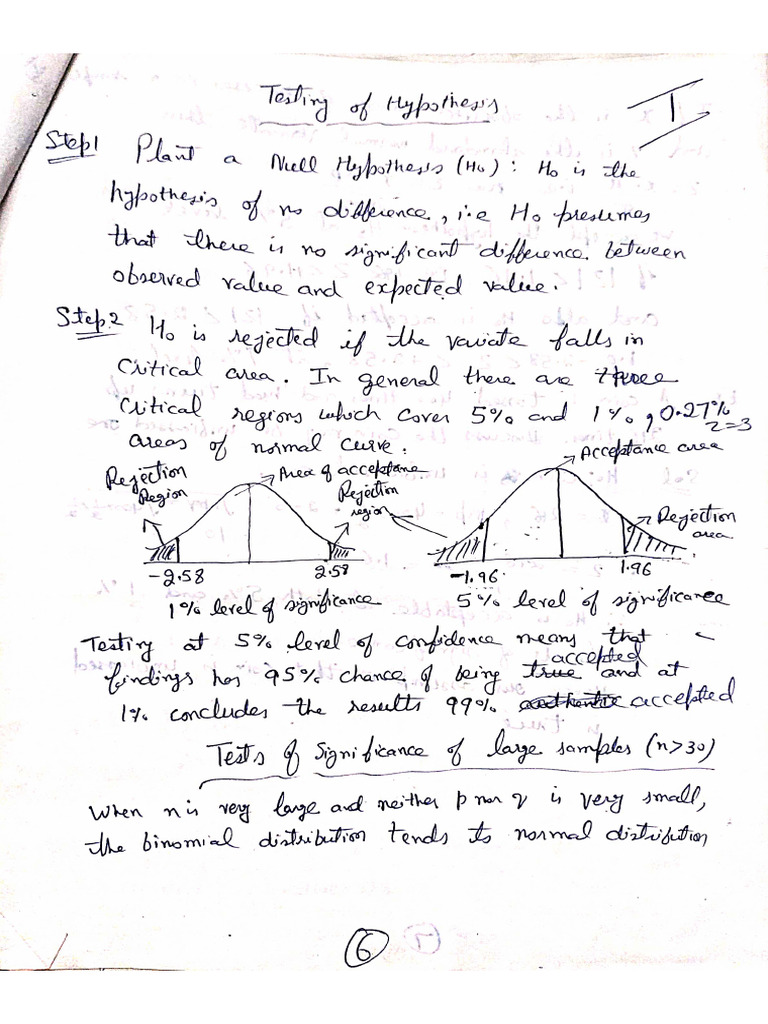 Testing of Hypothesis
I
Step1 Plant a Null Hypothesis (H0) : H0 is the
hypothesis of no difference, i.e H0 presumes
that there is no significant difference between
observed value and expected value.
Step.2 H0 is rejected if the variate falls in
Critical area. In general there are three
Critical regions which cover 5% and 1%, 0.27%
z=3
areas of normal curve.
Rejection Region
Area of acceptance
Rejection region
Acceptance area
Rejection area
-2.58 2.58 -1.96 1.96
1% level of significance 5% level of significance
Testing at 5% level of confidence means that
accepted
findings has 95% chance of being true and at
1% concludes the results 99% authentic accepted
Tests of Significance of large samples (n>30)
When n is very large and neither p nor q is very small,
the binomial distribution tends to normal distribution
6